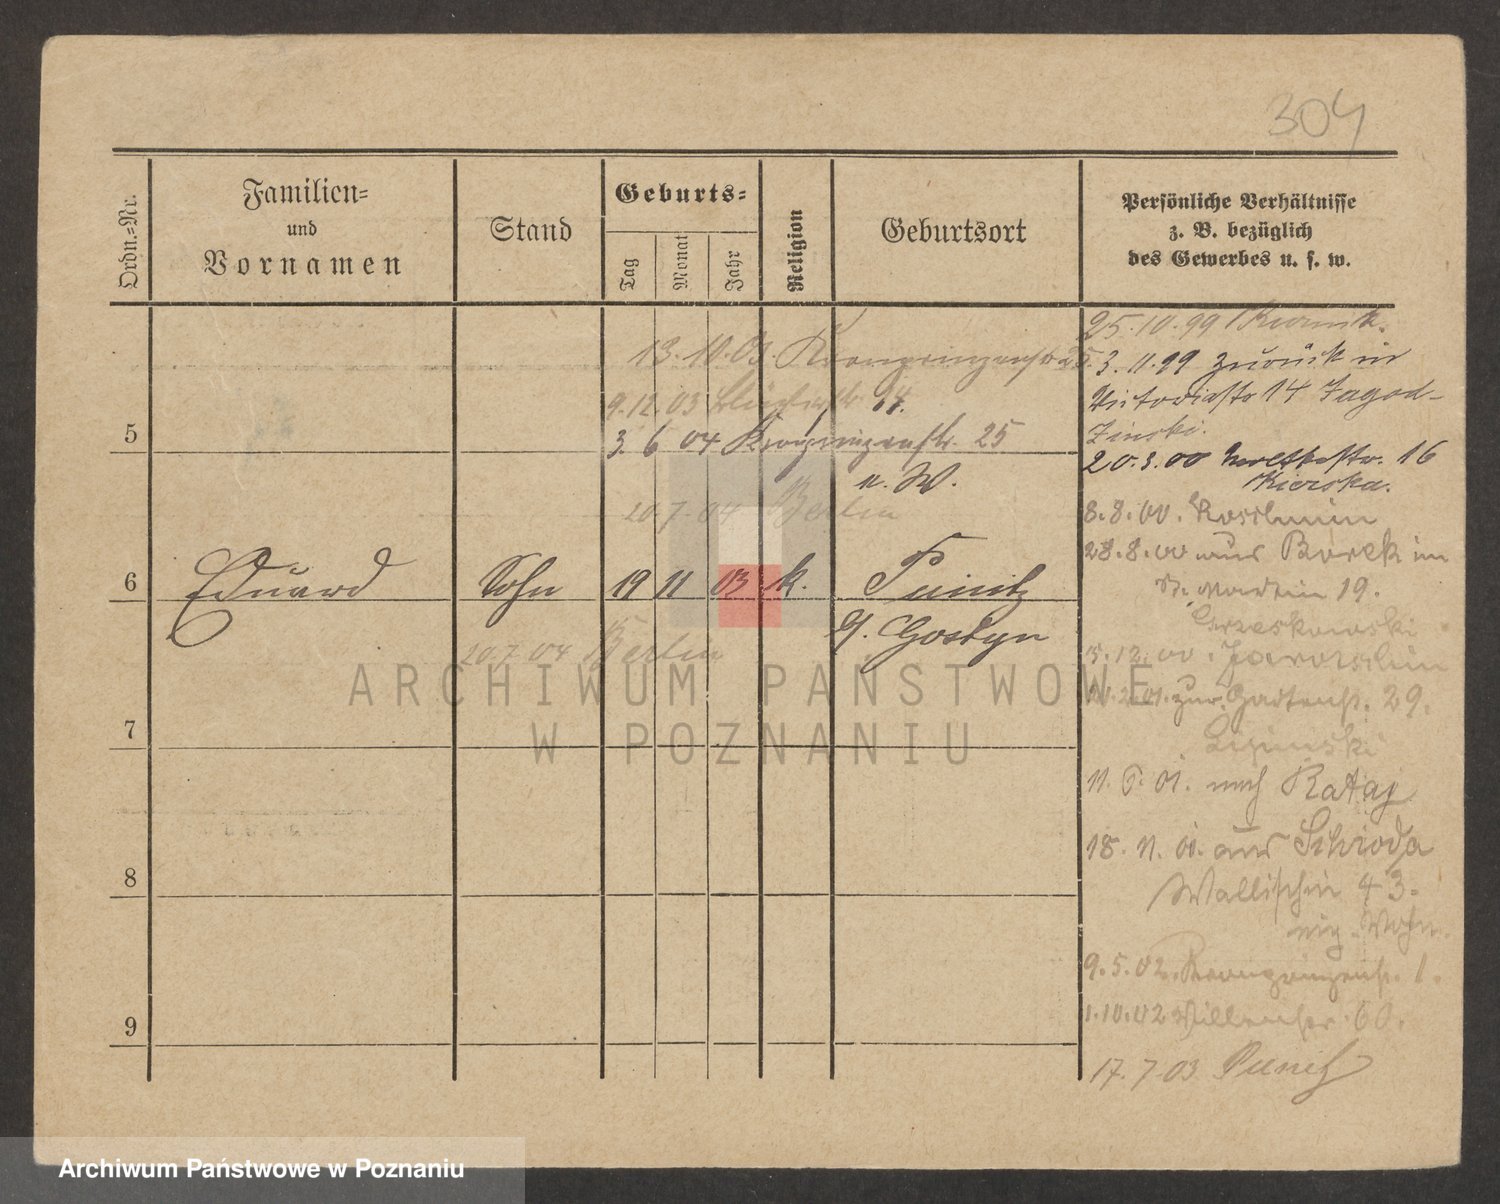 304
Ordn.=Nr.
Familien=
und
Vornamen
Stand
Geburts=
Tag
Monat
Jahr
Religion
Geburtsort
Persönliche Verhältnisse
z. B. bezüglich
des Gewerbes u. s. w.
25.10.99 Kurnik.
13.10.03. Kronprinzenstr 25.
3.11.99 zurück in
9.12.03 Blücherstr 14.
Victoriastr 14 Jagod-
zinski.
5
3. 6 04 Kronprinzenstr. 25
20.3.00 Moltkestr. 16
n. W.
Kierska.
20.7.04 Berlin
8.8.00. Koschmin
28.8.00 aus Borek in
6
Eduard
Sohn
19
11
03
k.
Punitz
St. Martin 19.
Kr. Gostyn
Grzeskowski
20.7.04 Berlin
5.12.00. Jarotschin
zur. Gartenstr. 29.
ARCHIWUM PAŃSTWOWE
W POZNANIU
7
Lipinski
11. 6. 01. nach Rataj
18. 11. 01. aus Schroda
8
Wallischei 43.
eig. Wohn.
9.5.02. Kronprinzenstr. 1.
1.10.02 60.
9
17.7.03 Punitz
Archiwum Państwowe w Poznaniu